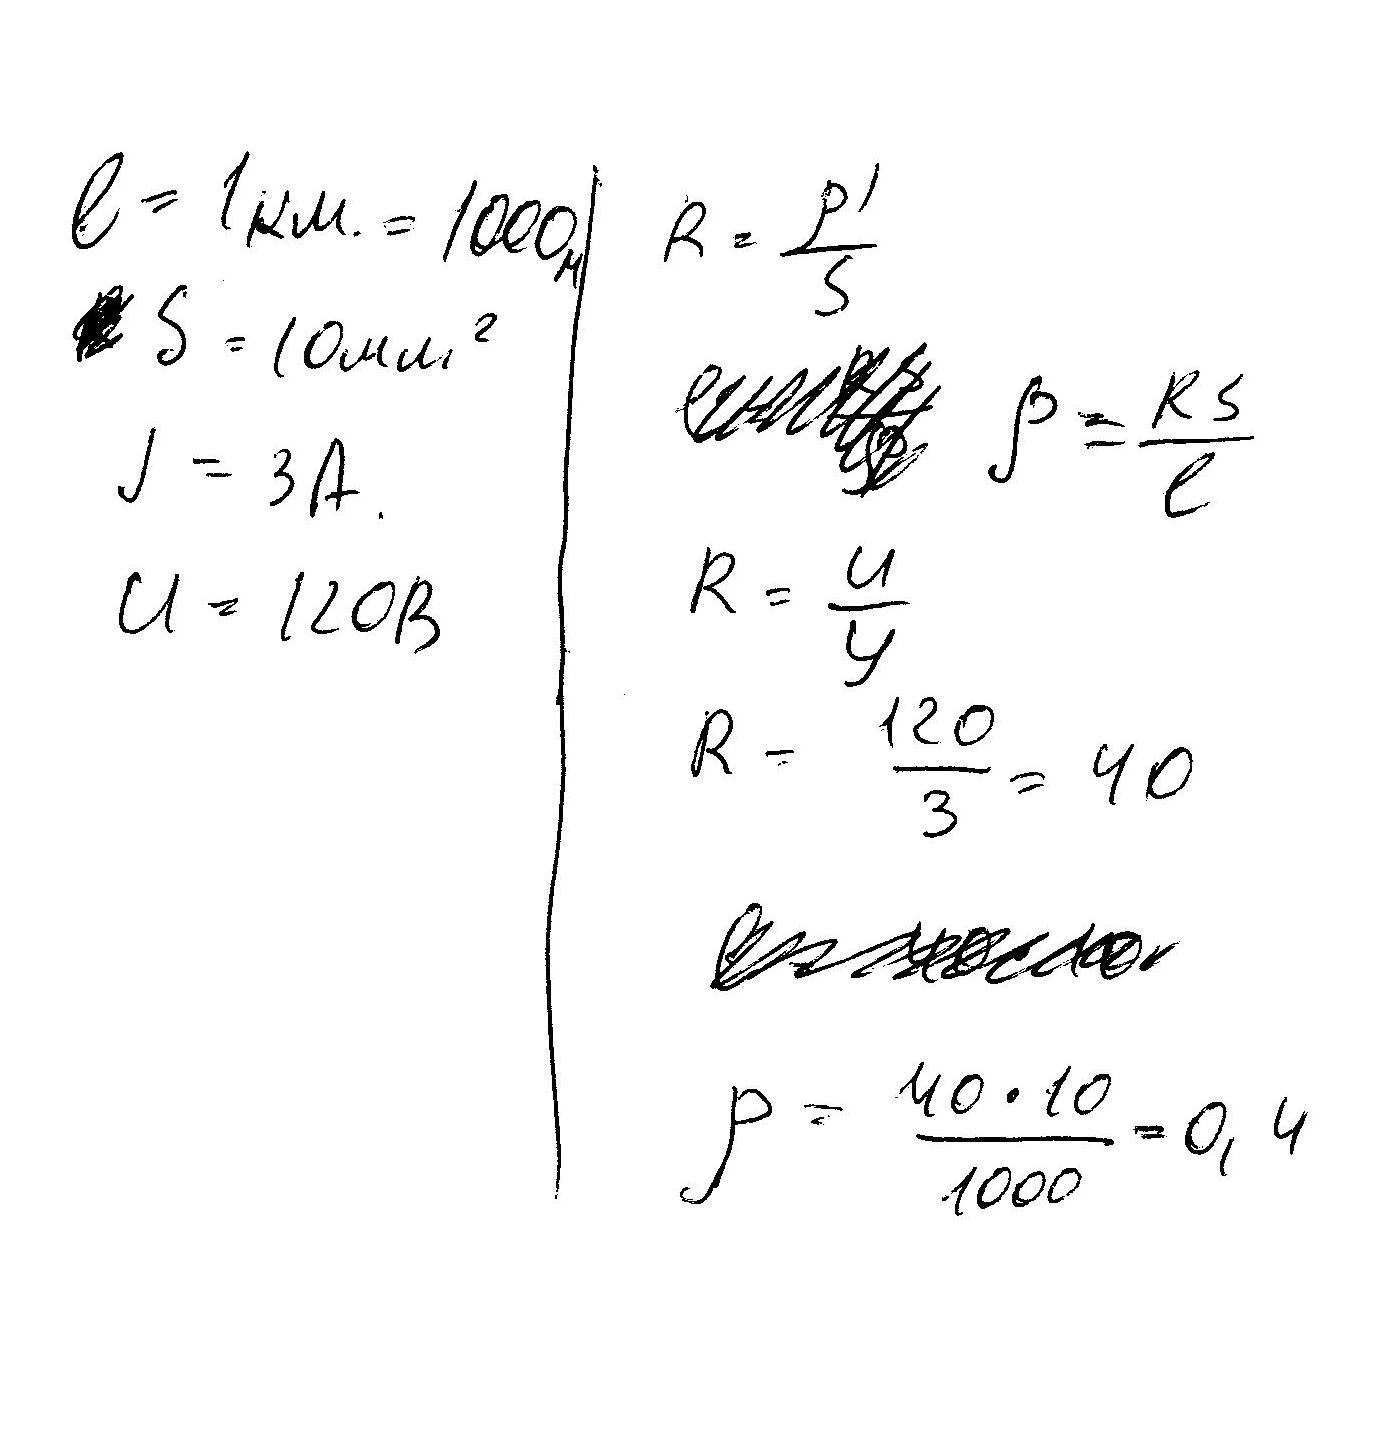 l = 1км. = 1000м
S = 10мм²
J = 3А.
U = 120В
R = ρl/S
ρ = RS/l
R = U/У
R = 120/3 = 40
ρ = 40·10/1000 = 0,4